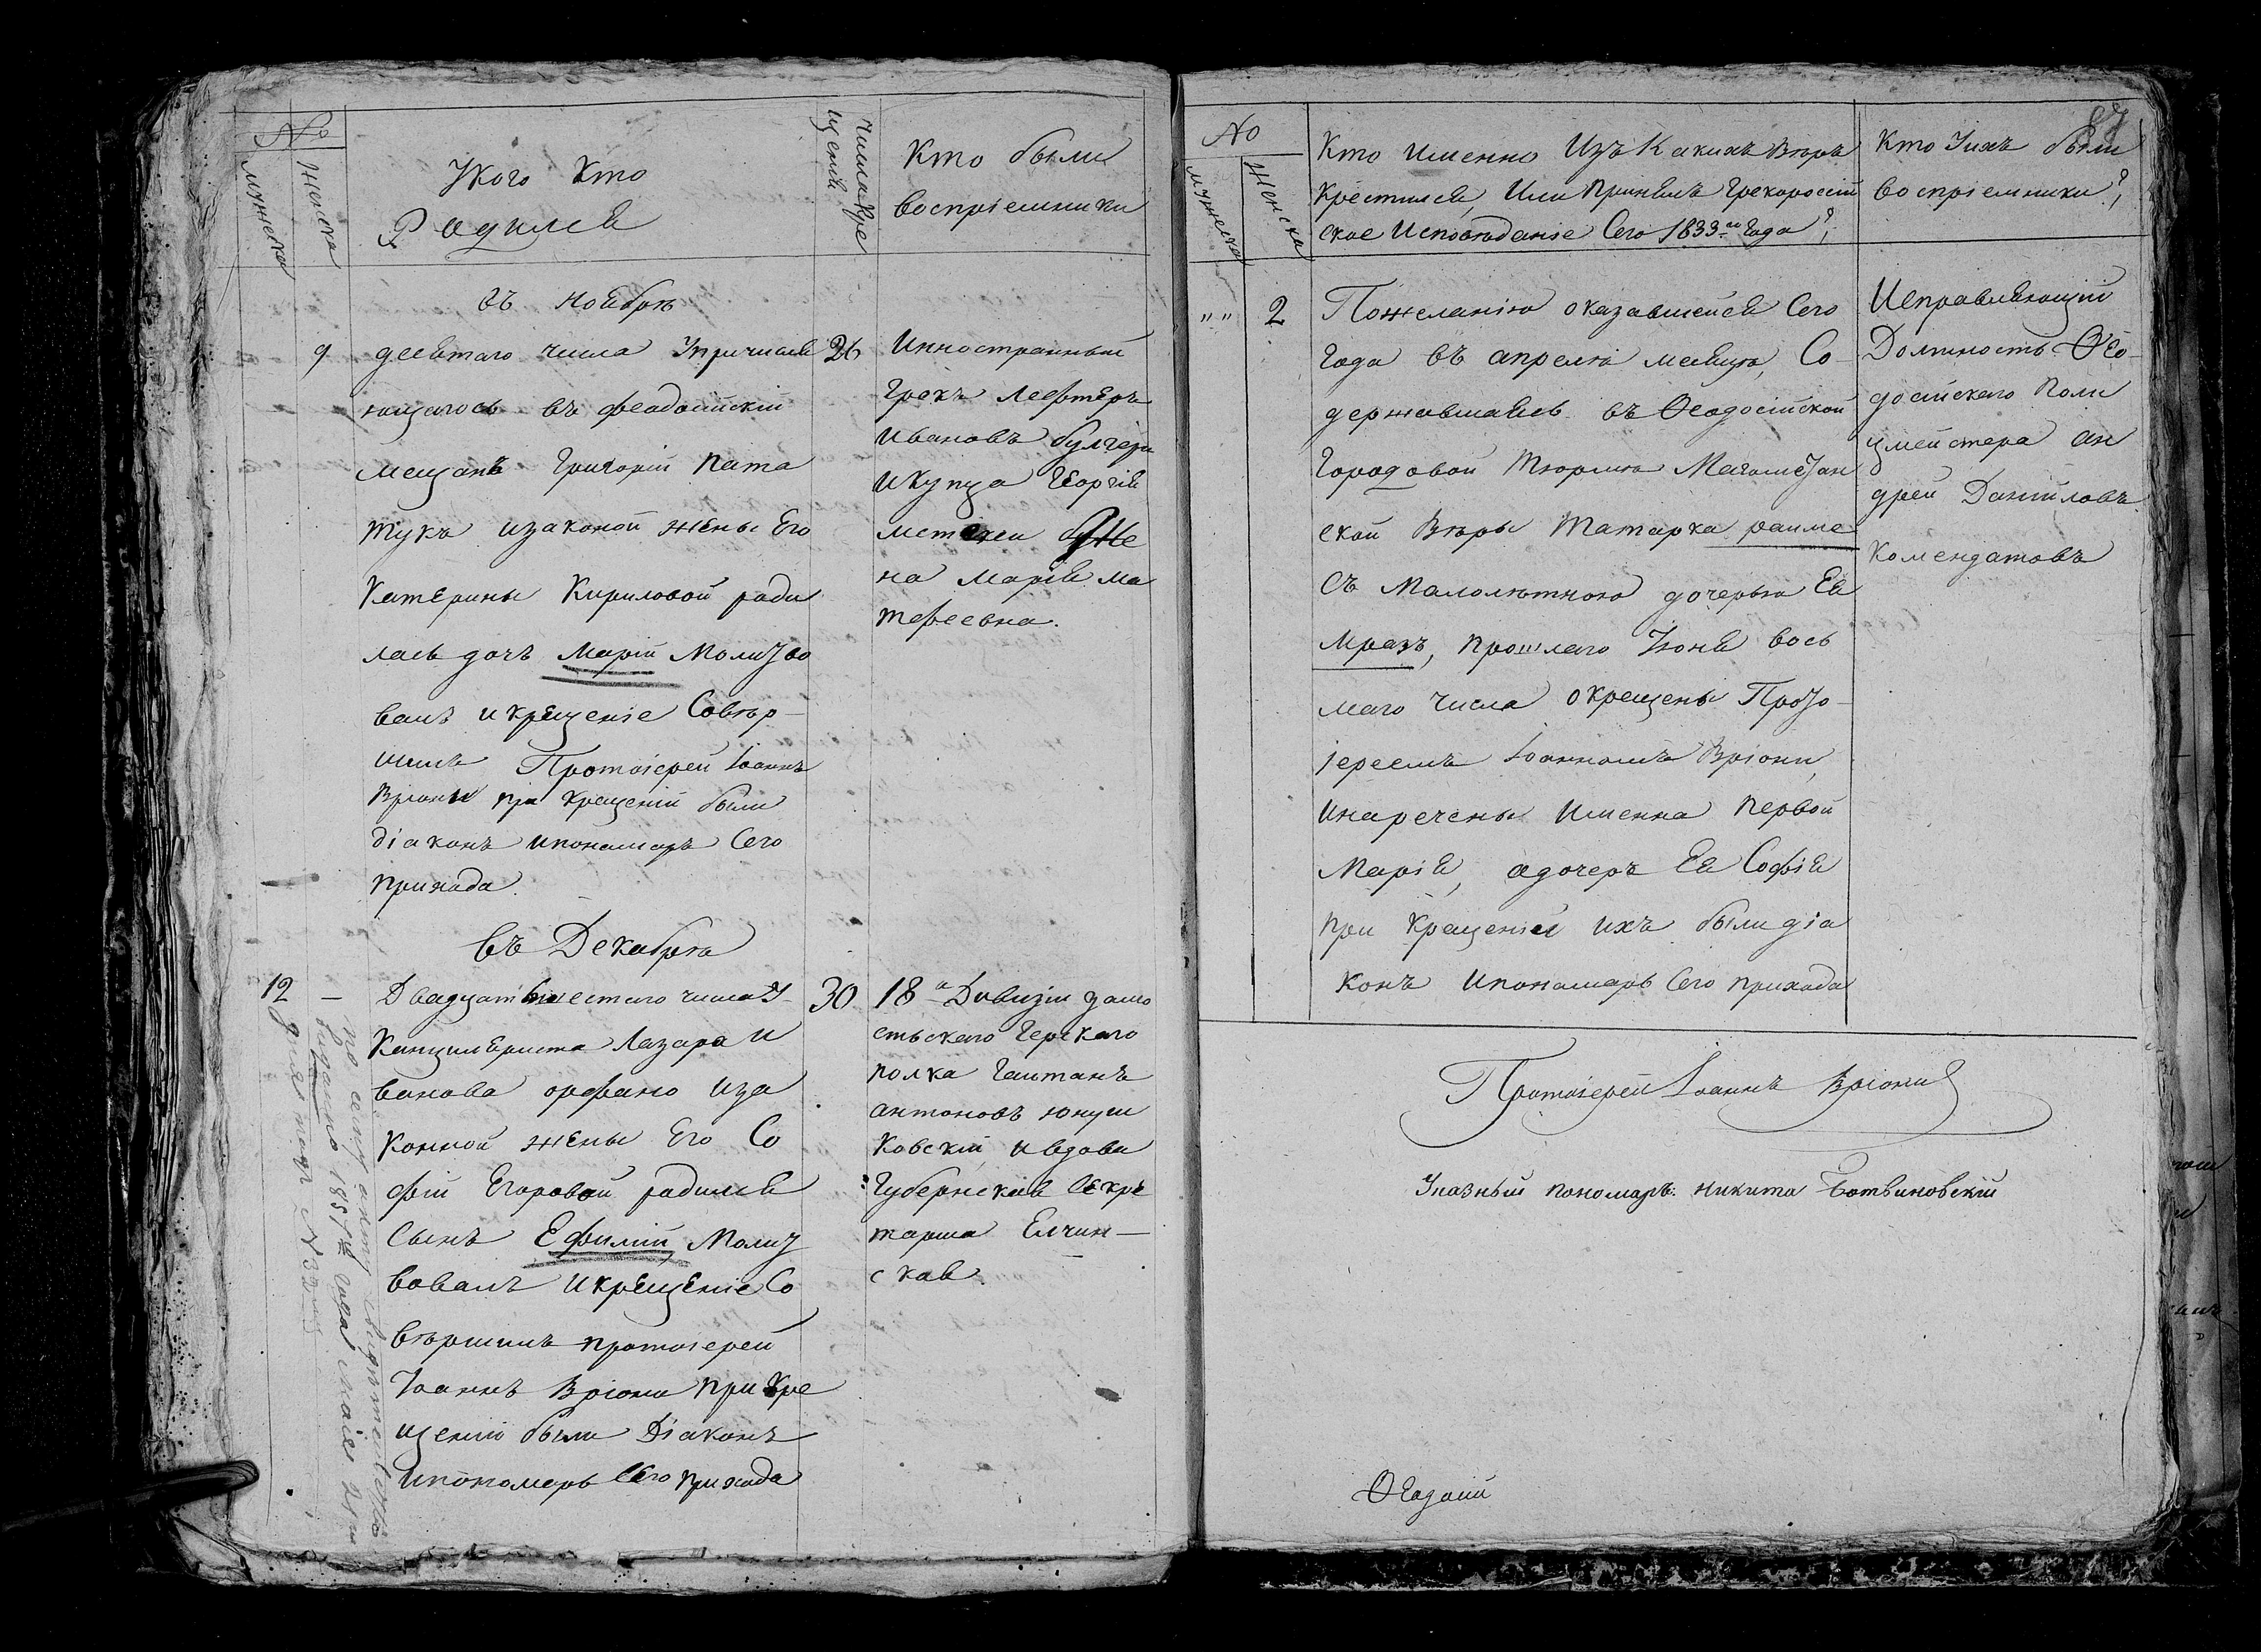 №
мужеска
женска
Укого Кто
Родился
числа кре
щенія
Кто были
воспріемники
въ Ноябрѣ
9
девятаго числа Упричисля
26
ющагося въ феодосійскіи
мещанъ Григорій Пата
тука изаконой жены Его
Катерины Кириловой роди
лась дочъ Марія Молитво
валъ и крещеніе Совѣр-
шилъ Протоіерей Іоаннъ
Вріони при крещеніи были
діаконъ ипономаръ Сего
прихода.
Инностранный
Грекъ Лефтеръ
Ивановъ булгари
Икупца Георгія
на Марія Ма
тфеевна.
въ Декабрѣ
12
–
Двадцатьшестаго числа У
30
Канцеляриста Лазара И
ванова орфано иза
конной жены Его Со
фіи Егоровой родился
Сынъ Ефимій Молит
вовалъ и крещеніе Со
вѣршилъ протоіерей
Іоаннъ Вріони при кре
щеніи были Діаконъ
ипономаръ Сего прихода
18а Дивизіи
полка
антоновъ
ковскій и вдова
Губернская Секре
тарша Елчин-
ская.
по сему акту свидѣтельство
выдано 1857го года маія
дня под №32
87
№
мужеска
женска
Кто Именно Изъ Какихъ Вѣръ
Крестился, Или Принялъ Грекоросcій
ское Исповѣданіе Сего 1833го Года?
Кто Унихъ были
воспріемники?
" "
2
Пожеланію оказавшейся Сего
Года въ апрелѣ месяцѣ, Со-
державшаясь въ Ѳеодосійской
Городовой Тюрмѣ Магометан
ской Вѣры Татарка раиме
съ Малолѣтною дочерью Ея
Мразъ, прошлаго Іюня вось
маго числа окрещены Прото-
іереемъ Іоанномъ Вріони,
инаречены Именна первой
Марія, адочеръ Ея Софія
при Крещеніи ихъ были діа
конъ Ипономаръ Сего прихода
Исправляющій
Должность Ѳео-
досійскаго Поли
цмейстера Ан
дрей Даниловъ
Комендатовъ
Протоіерей Іоаннъ Вріони
Указный пономаръ: никита Ботвиновскій
Ѳеодосіи